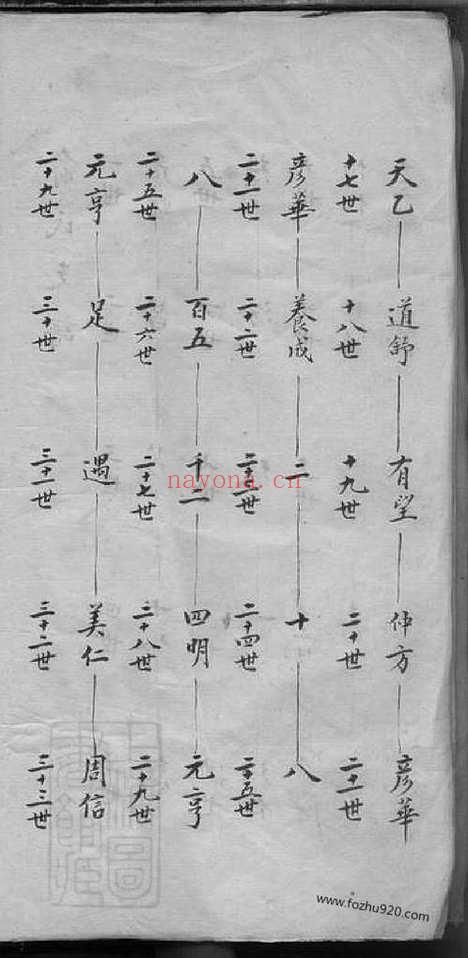 天乙 道舒 有望 仲方 彥華
十七世 十八世 十九世 二十世 二十一世
彥華 養成 二 十 八
二十一世 二十二世 二十三世 二十四世 二十五世
八 百五 千二 四明 元亨
二十五世 二十六世 二十七世 二十八世 二十九世
元亨 足 遇 美仁 周信
二十九世 三十世 三十一世 三十二世 三十三世
nayona.cn
www.fozhu920.com